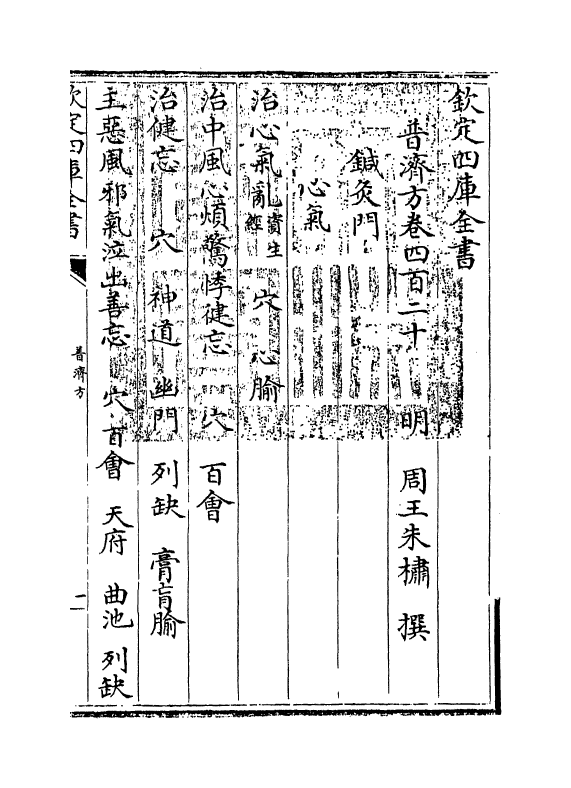 欽定四庫全書
普濟方卷四百二十 明 周王朱橚 撰
鍼灸門
心氣
治心氣亂資生經 穴 心腧
治中風心煩驚悸健忘 穴 百會
治健忘 穴 神道 幽門 列缺 膏肓腧
主惡風邪氣泣出善忘 穴 百會 天府 曲池 列缺
欽定四庫全書
普濟方